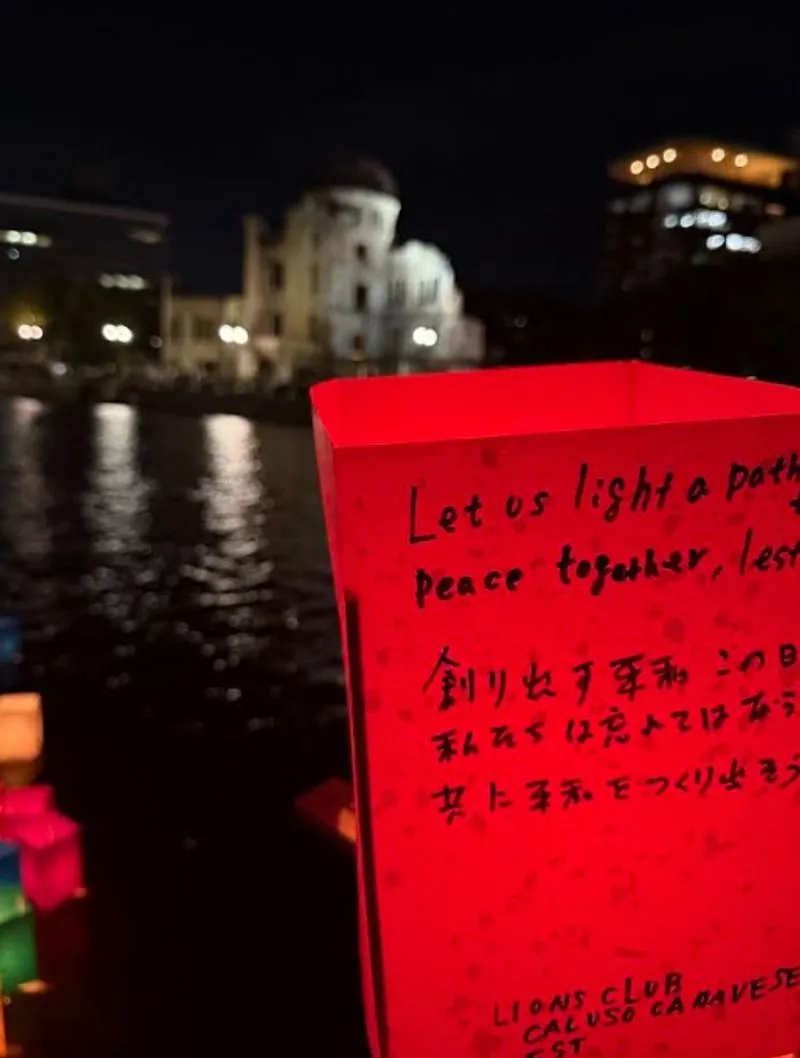 Let us light a path
peace together, lest
創り出す平和 この日
私たちは忘れてはならう
共に平和をつくり出そう
LIONS CLUB
CALUSO CANAVESE
EST